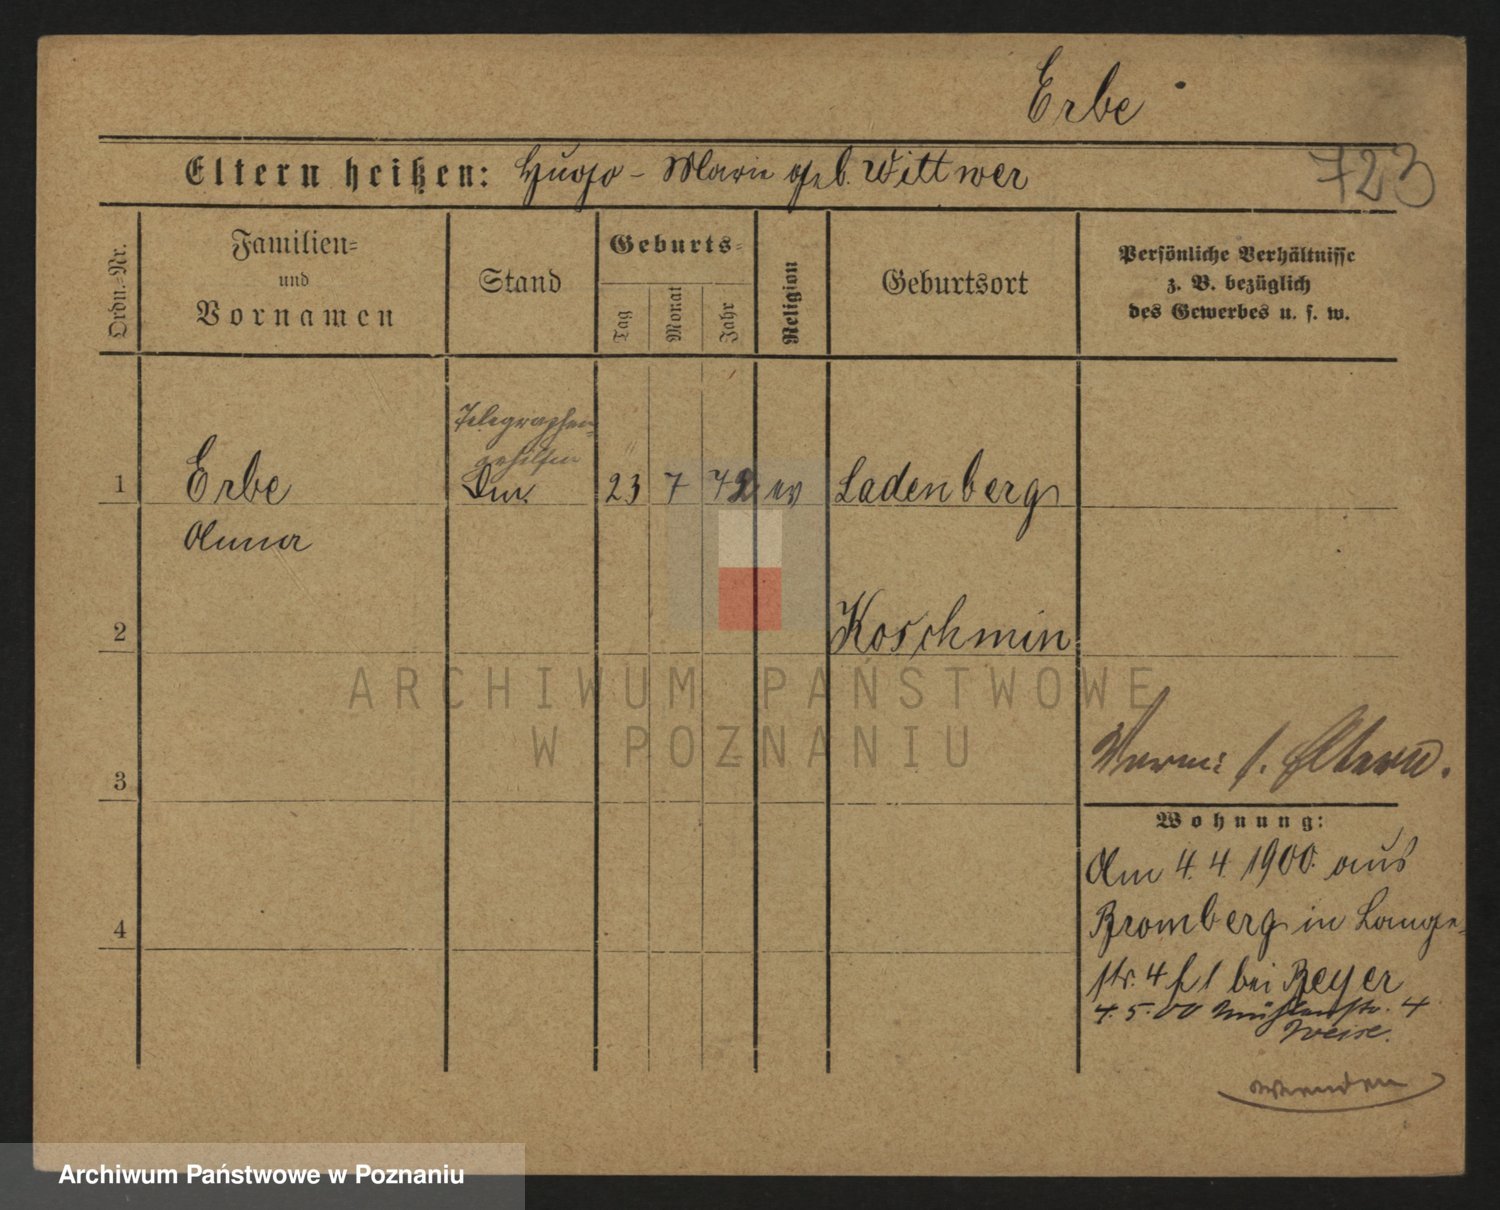 Erbe
723
Eltern heißen: Hugo - Marie geb. Wittwer
Ordn.=Nr.
Familien=
und
Vornamen
Stand
Geburts=
Tag
Monat
Jahr
Religion
Geburtsort
Persönliche Verhältnisse
z. B. bezüglich
des Gewerbes u. s. w.
Telegraphen-
gehilfin
1 Erbe 23 7 72 ev Ladenberg
Anna
2 Koschmin
ARCHIWUM PAŃSTWOWE
W POZNANIU
3 Verm: s. Eltern.
Wohnung:
Am 4. 4. 1900. aus
4 Bromberg in Lange-
str. 4 bei Beyer
4. 5. 00 Mühlenstr. 4
Weise.
wenden
Archiwum Państwowe w Poznaniu